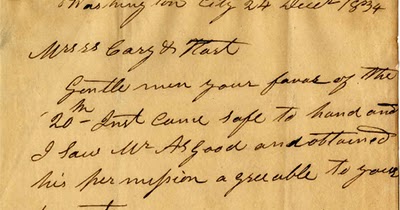 Washington City 24 Decr 1834
Mrsrs Cary & Hart
Gentle men your favor of the
20th Inst came safe to hand and
I Saw Mr As Good and obtained
his permission agreeable to your